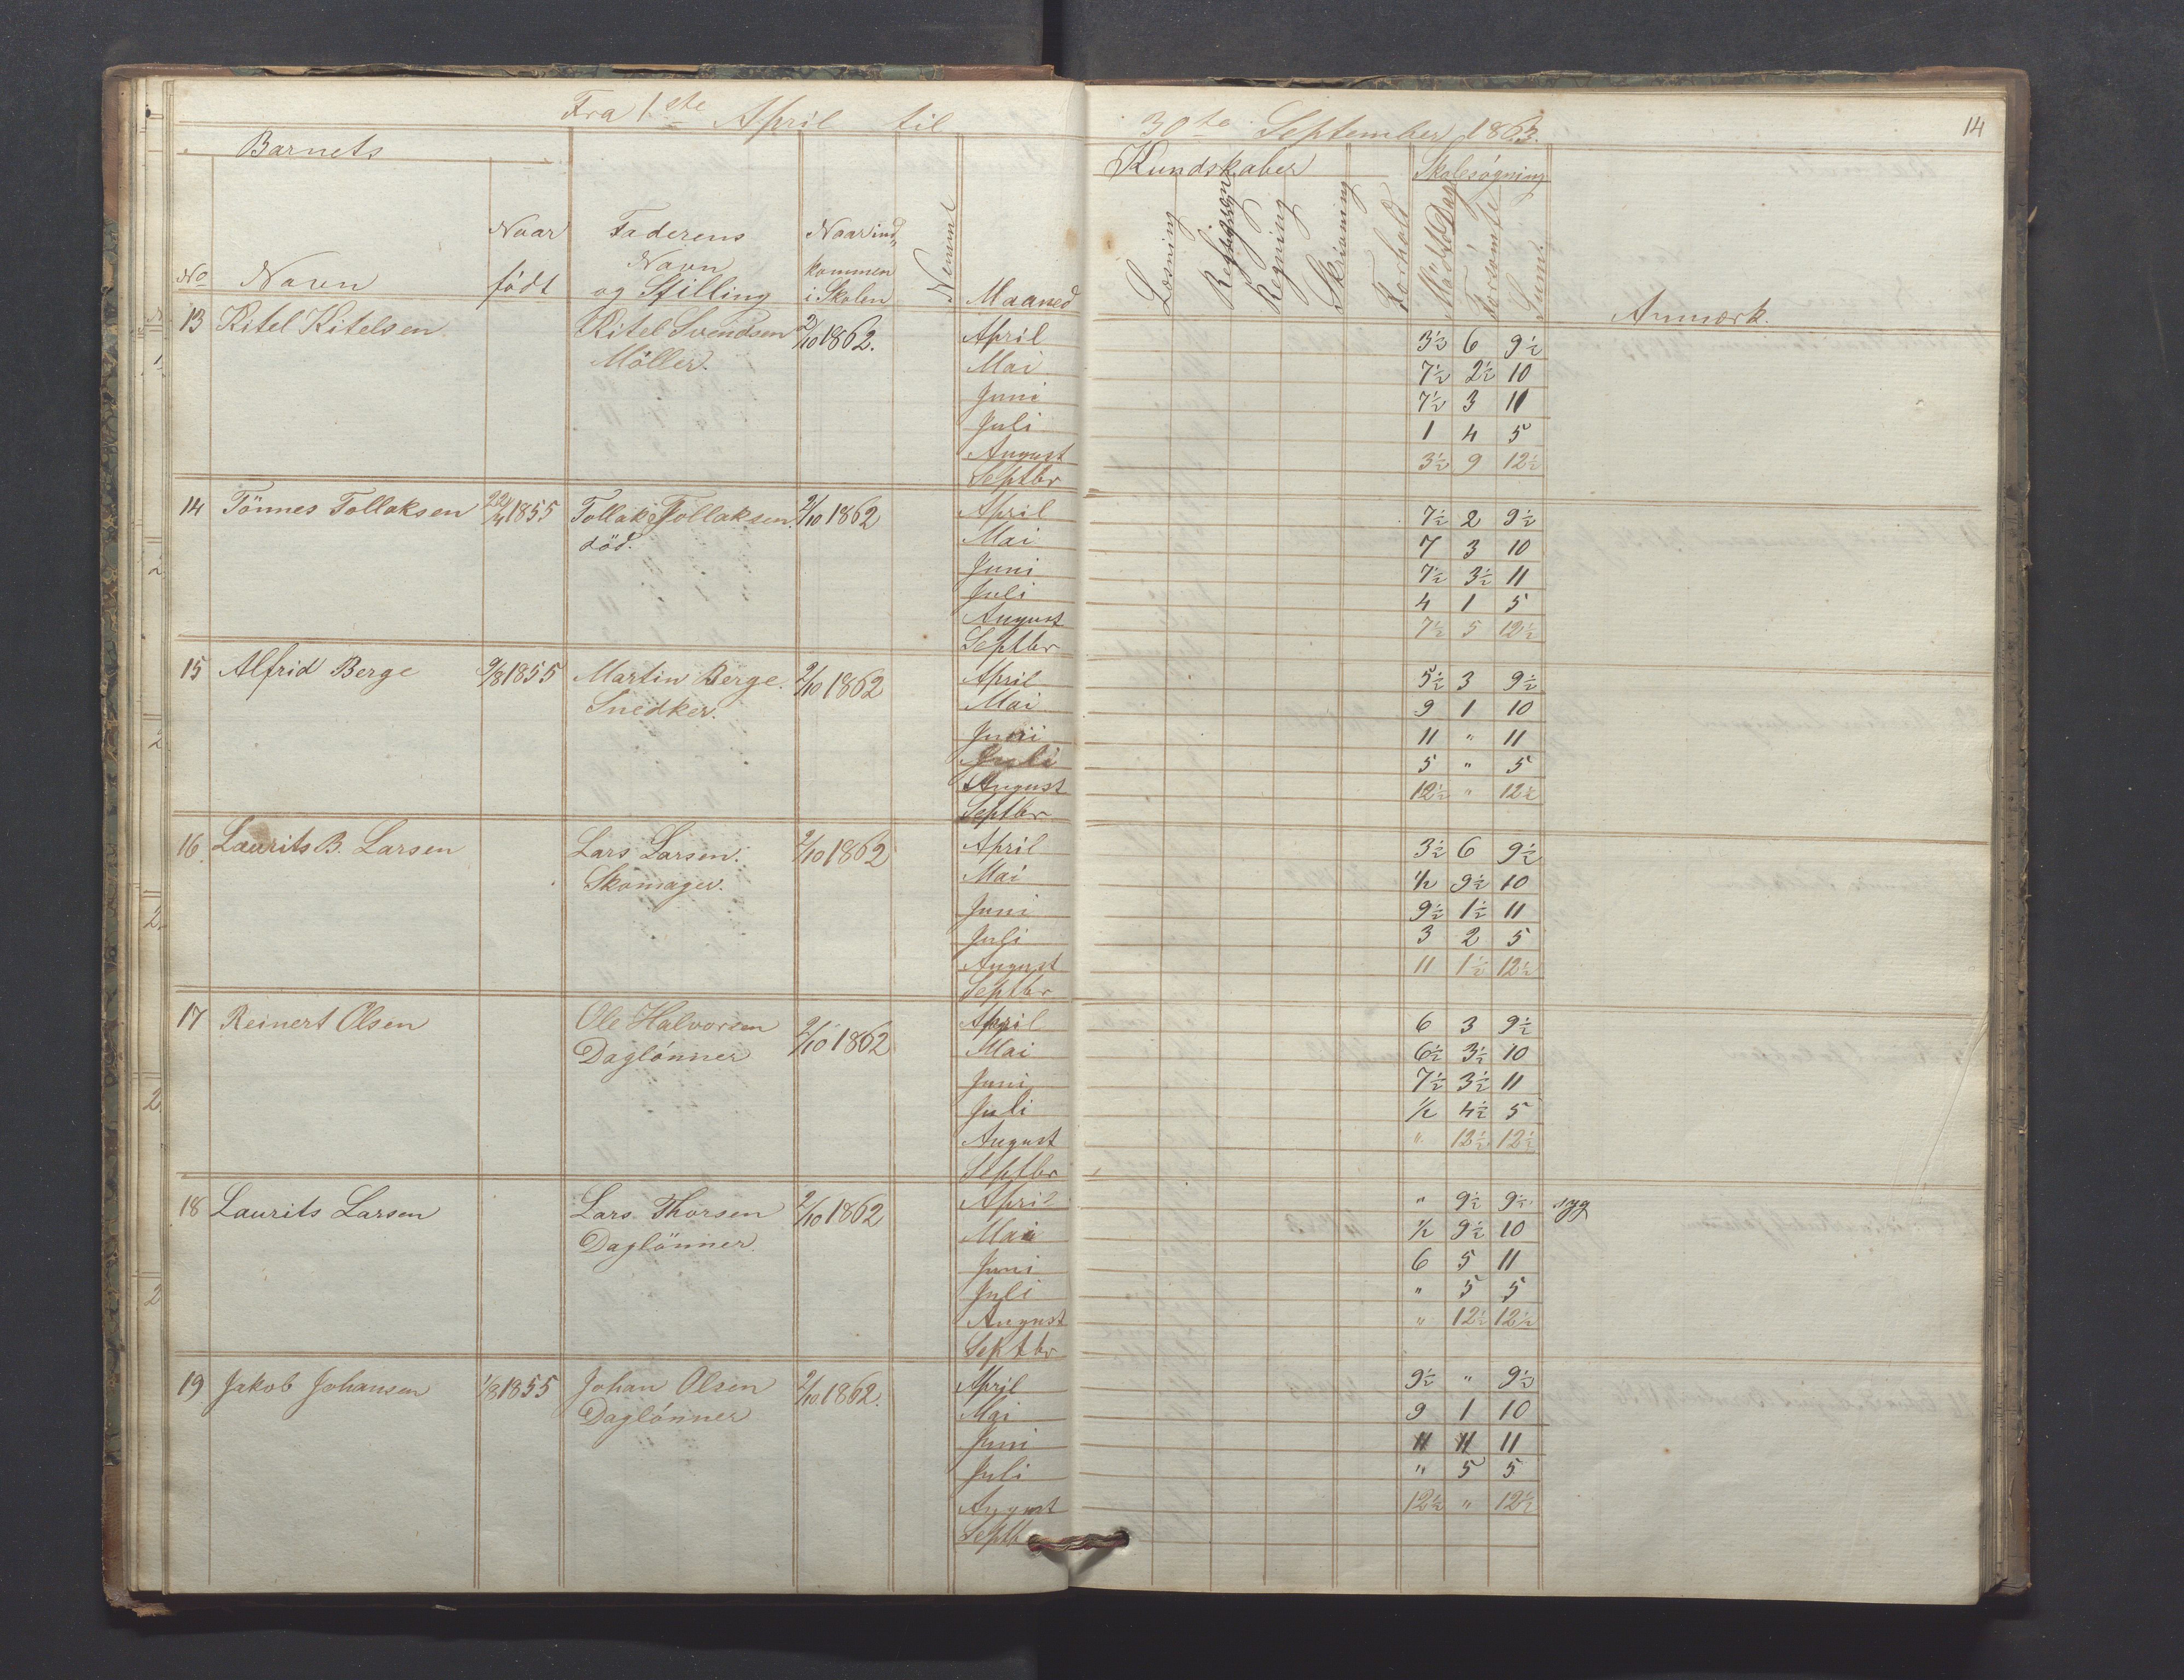 Fra 1ste April til 30te September 1863.
14
Barnets
Kundskaber
Skolesøgning
No
Navn
Naar født
Faderens Navn og Stilling
Naar ind„ kommen i Skolen
Nummer
Maaned
Læsning
Religion
Regning
Skrivning
Forhold
Mødte Dage
Forsømte
Summa
Anmærk.
13 Kitel Kitelsen Kitel Svendsen 2/10 1862. April 3½ 6 9½
Møller. Mai 7½ 2½ 10
Juni 7½ 3 11
Juli 1 4 5
August 3½ 9 12½
Septbr
14 Tönnes Tollaksen 22/4 1855 Tollak Tollaksen. 2/10 1862 April 7½ 2 9½
död. Mai 7 3 10
Juni 7½ 3½ 11
Juli 4 1 5
August 7½ 5 12½
Septbr
15 Alfrid Berge 9/8 1855 Martin Berge. 2/10 1862 April 5½ 3 9½
Snedker. Mai 9 1 10
Juni 11 " 11
Juli 5 " 5
August 12½ " 12½
Septbr
16 Laurits B. Larsen Lars Larsen. 2/10 1862 April 3½ 6 9½
Skomager. Mai ½ 9½ 10
Juni 9½ 1½ 11
Juli 3 2 5
August 11 1½ 12½
Septbr
17 Reinert Olsen Ole Halvorsen 2/10 1862 April 6 3 9½
Daglønner Mai 6½ 3½ 10
Juni 7½ 3½ 11
Juli ½ 4½ 5
August " 12½ 12½
Septbr
18 Laurits Larsen Lars Thorsen 2/10 1862 April " 9½ 9½ syg
Daglönner. Mai ½ 9½ 10
Juni 6 5 11
Juli " 5 5
August " 12½ 12½
Septbr
19 Jakob Johansen 1/8 1855 Johan Olsen 2/10 1862. April 9½ " 9½
Daglønner Mai 9 1 10
Juni 11 11 11
Juli " 5 5
August 12½ " 12½
Septb